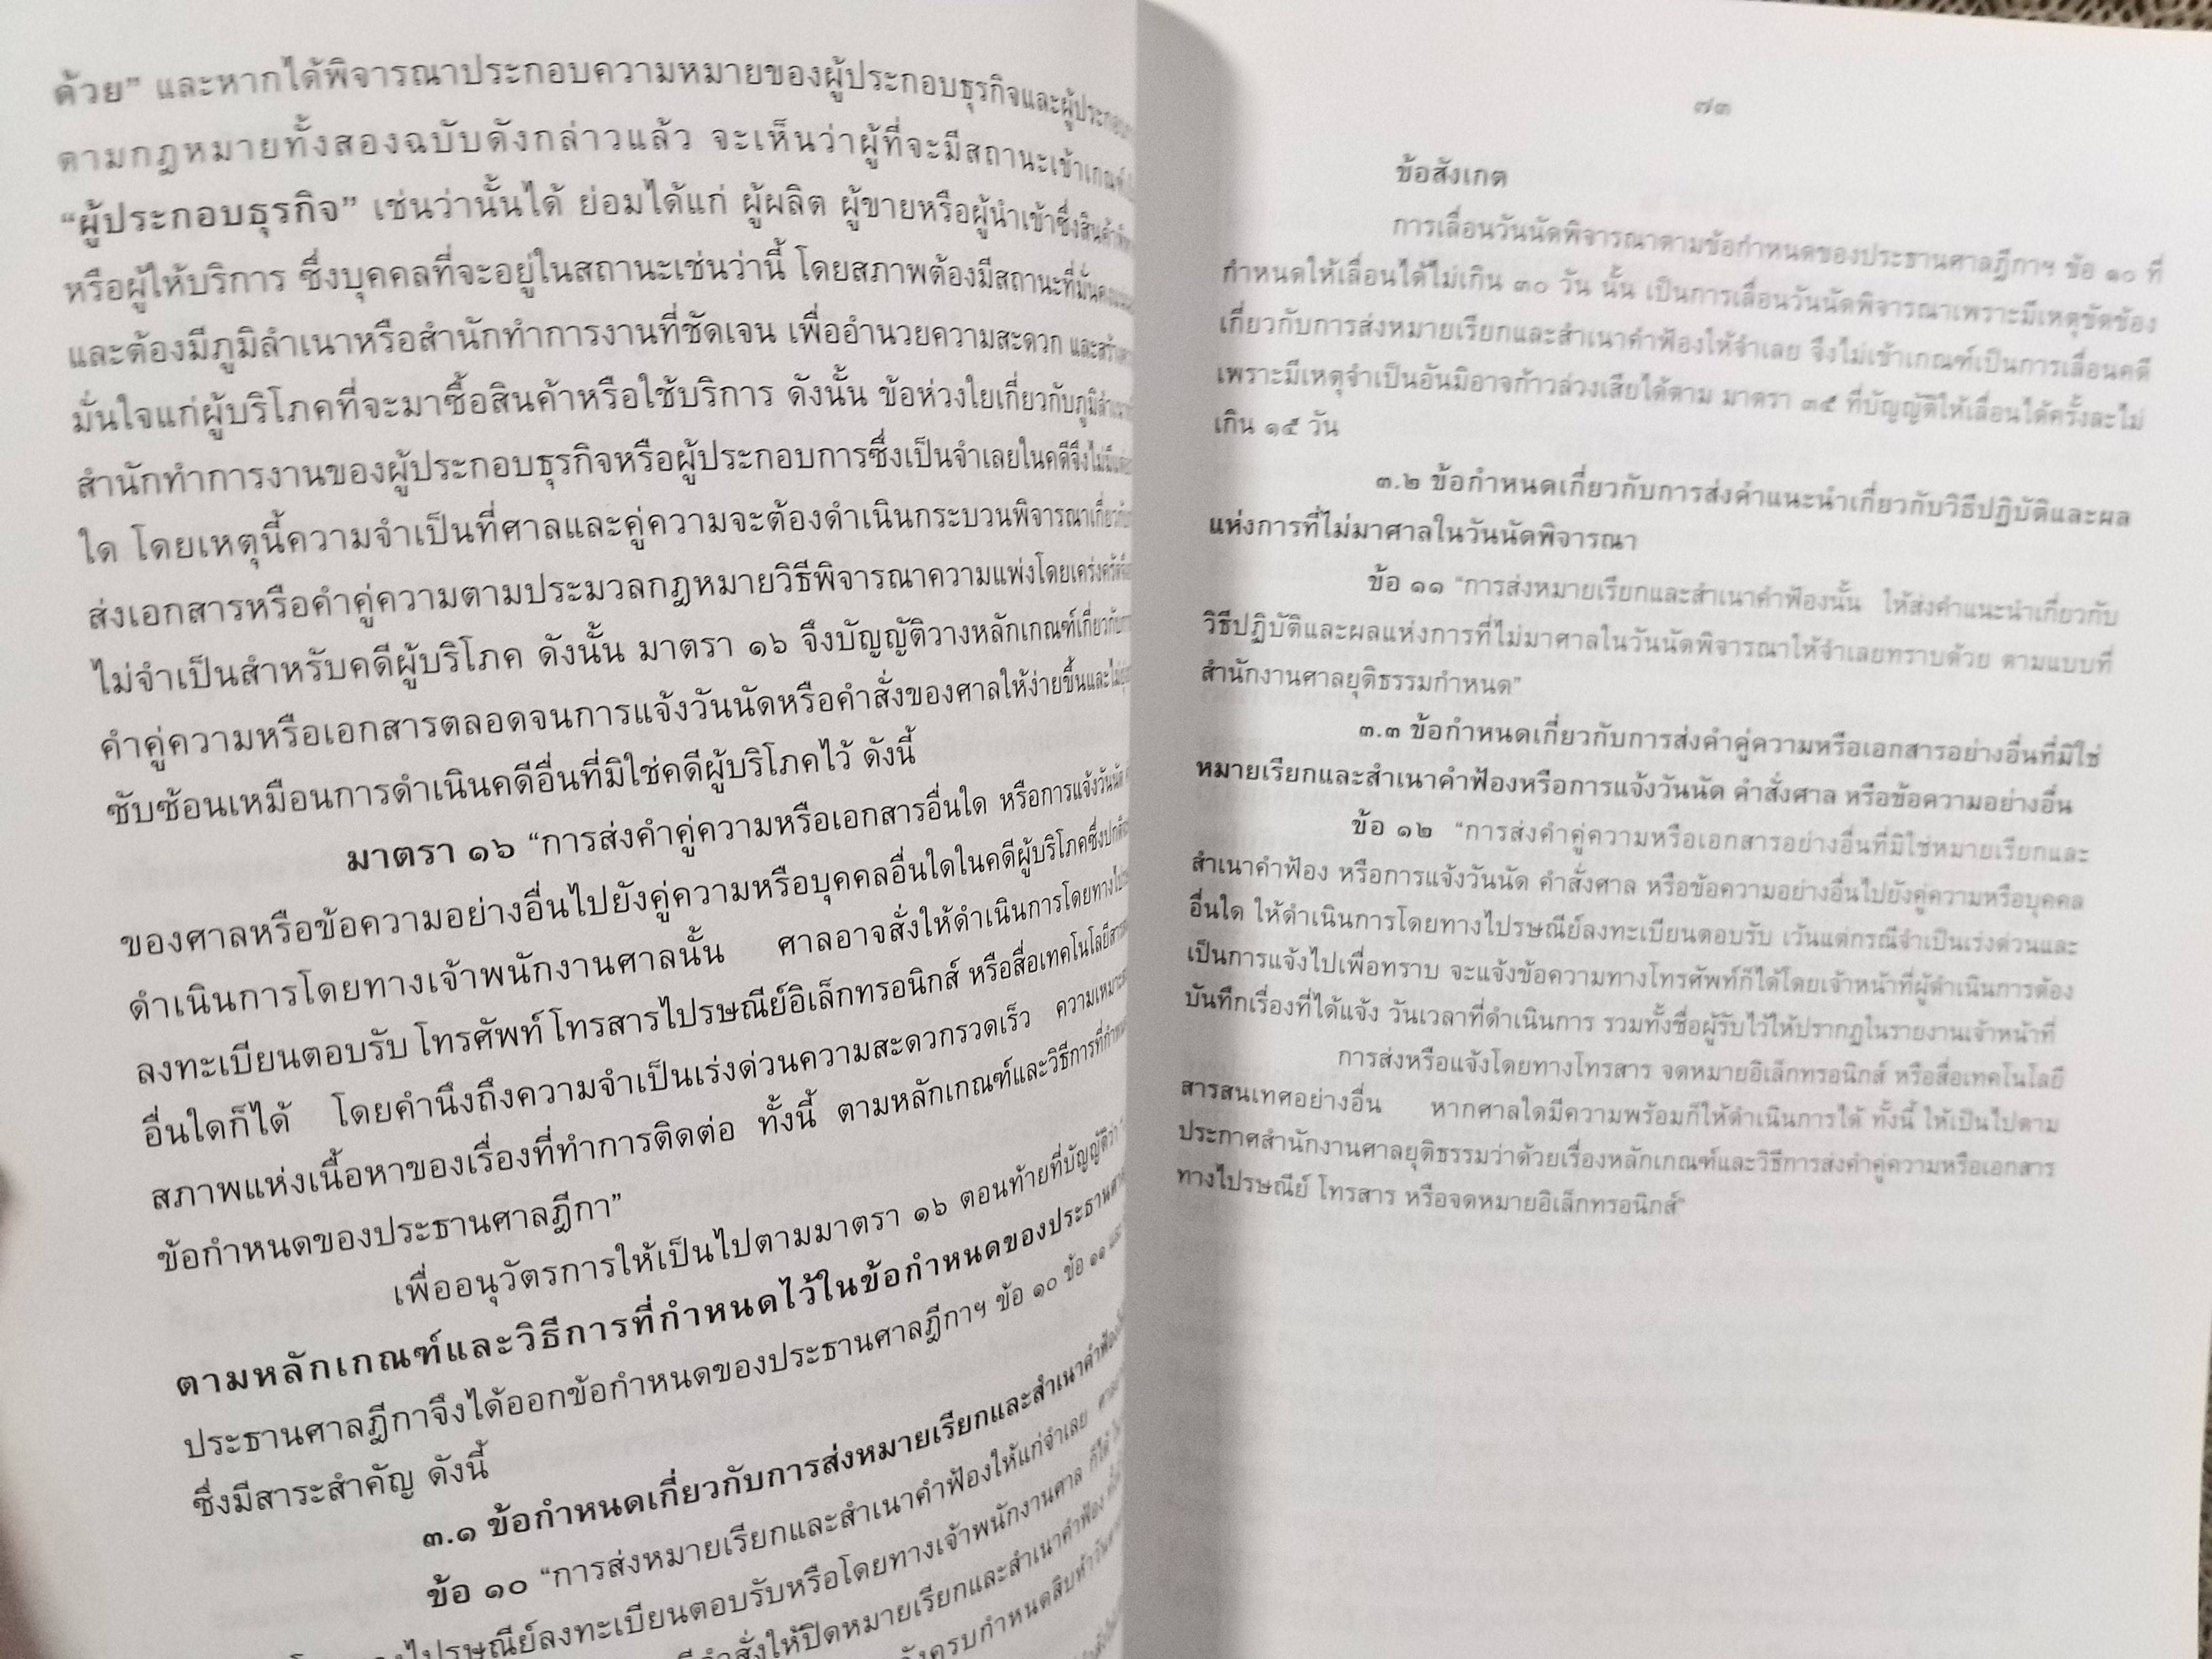 ด้วย” และหากได้พิจารณาประกอบความหมายของผู้ประกอบธุรกิจและ
ตามกฎหมายทั้งสองฉบับดังกล่าวแล้ว จะเห็นว่าผู้ที่จะมีสถานะเข้าเกณฑ์
“ผู้ประกอบธุรกิจ” เช่นว่านั้นได้ ย่อมได้แก่ ผู้ผลิต ผู้ขายหรือผู้นำเข้าซึ่งสินค้า
หรือผู้ให้บริการ ซึ่งบุคคลที่จะอยู่ในสถานะเช่นว่านี้ โดยสภาพต้องมีสถานะที่
และต้องมีภูมิลำเนาหรือสำนักทำการงานที่ชัดเจน เพื่ออำนวยความสะดวก
มั่นใจแก่ผู้บริโภคที่จะมาซื้อสินค้าหรือใช้บริการ ดังนั้น ข้อห่วงใยเกี่ยวกับ
สำนักทำการงานของผู้ประกอบธุรกิจหรือผู้ประกอบการซึ่งเป็นจำเลยในคดีจึงไม่มี
ใด โดยเหตุนี้ความจำเป็นที่ศาลและคู่ความจะต้องดำเนินกระบวนพิจารณา
ส่งเอกสารหรือคำคู่ความตามประมวลกฎหมายวิธีพิจารณาความแพ่งโดยเคร่งครัด
ไม่จำเป็นสำหรับคดีผู้บริโภค ดังนั้น มาตรา ๑๖ จึงบัญญัติวางหลักเกณฑ์เกี่ยวกับ
คำคู่ความหรือเอกสารตลอดจนการแจ้งวันนัดหรือคำสั่งของศาลให้ง่ายขึ้นและ
ซับซ้อนเหมือนการดำเนินคดีอื่นที่มิใช่คดีผู้บริโภคไว้ ดังนี้
มาตรา ๑๖ “การส่งคำคู่ความหรือเอกสารอื่นใด หรือการแจ้งวันนัด
ของศาลหรือข้อความอย่างอื่นไปยังคู่ความหรือบุคคลอื่นใดในคดีผู้บริโภคซึ่ง
ดำเนินการโดยทางเจ้าพนักงานศาลนั้น ศาลอาจสั่งให้ดำเนินการโดยทาง
ลงทะเบียนตอบรับ โทรศัพท์ โทรสารไปรษณีย์อิเล็กทรอนิกส์ หรือสื่อเทคโนโลยี
อื่นใดก็ได้ โดยคำนึงถึงความจำเป็นเร่งด่วนความสะดวกรวดเร็ว
สภาพแห่งเนื้อหาของเรื่องที่ทำการติดต่อ ทั้งนี้ ตามหลักเกณฑ์และวิธีการที่
ข้อกำหนดของประธานศาลฎีกา”
เพื่ออนุวัตรการให้เป็นไปตามมาตรา ๑๖ ตอนท้ายที่บัญญัติว่า
ตามหลักเกณฑ์และวิธีการที่กำหนดไว้ในข้อกำหนดของประธาน
ประธานศาลฎีกาจึงได้ออกข้อกำหนดของประธานศาลฎีกาฯ ข้อ ๑๐ ข้อ ๑๑
ซึ่งมีสาระสำคัญ ดังนี้
๓.๑ ข้อกำหนดเกี่ยวกับการส่งหมายเรียกและสำเนาคำฟ้อง
ข้อ ๑๐ “การส่งหมายเรียกและสำเนาคำฟ้องให้แก่จำเลย
ไปรษณีย์ลงทะเบียนตอบรับหรือโดยทางเจ้าพนักงานศาล ก็ได้
คำสั่งให้ปิดหมายเรียกและสำเนาคำฟ้อง
ครบกำหนดสิบห้าวัน
๗๓
ข้อสังเกต
การเลื่อนวันนัดพิจารณาตามข้อกำหนดของประธานศาลฎีกาฯ ข้อ ๑๐ ที่
กำหนดให้เลื่อนได้ไม่เกิน ๓๐ วัน นั้น เป็นการเลื่อนวันนัดพิจารณาเพราะมีเหตุขัดข้อง
เกี่ยวกับการส่งหมายเรียกและสำเนาคำฟ้องให้จำเลย จึงไม่เข้าเกณฑ์เป็นการเลื่อนคดี
เพราะมีเหตุจำเป็นอันมิอาจก้าวล่วงเสียได้ตาม มาตรา ๓๕ ที่บัญญัติให้เลื่อนได้ครั้งละไม่
เกิน ๑๕ วัน
๓.๒ ข้อกำหนดเกี่ยวกับการส่งคำแนะนำเกี่ยวกับวิธีปฏิบัติและผล
แห่งการที่ไม่มาศาลในวันนัดพิจารณา
ข้อ ๑๑ “การส่งหมายเรียกและสำเนาคำฟ้องนั้น ให้ส่งคำแนะนำเกี่ยวกับ
วิธีปฏิบัติและผลแห่งการที่ไม่มาศาลในวันนัดพิจารณาให้จำเลยทราบด้วย ตามแบบที่
สำนักงานศาลยุติธรรมกำหนด”
๓.๓ ข้อกำหนดเกี่ยวกับการส่งคำคู่ความหรือเอกสารอย่างอื่นที่มิใช่
หมายเรียกและสำเนาคำฟ้องหรือการแจ้งวันนัด คำสั่งศาล หรือข้อความอย่างอื่น
ข้อ ๑๒ “การส่งคำคู่ความหรือเอกสารอย่างอื่นที่มิใช่หมายเรียกและ
สำเนาคำฟ้อง หรือการแจ้งวันนัด คำสั่งศาล หรือข้อความอย่างอื่นไปยังคู่ความหรือบุคคล
อื่นใด ให้ดำเนินการโดยทางไปรษณีย์ลงทะเบียนตอบรับ เว้นแต่กรณีจำเป็นเร่งด่วนและ
เป็นการแจ้งไปเพื่อทราบ จะแจ้งข้อความทางโทรศัพท์ก็ได้โดยเจ้าหน้าที่ผู้ดำเนินการต้อง
บันทึกเรื่องที่ได้แจ้ง วันเวลาที่ดำเนินการ รวมทั้งชื่อผู้รับไว้ให้ปรากฏในรายงานเจ้าหน้าที่
การส่งหรือแจ้งโดยทางโทรสาร จดหมายอิเล็กทรอนิกส์ หรือสื่อเทคโนโลยี
สารสนเทศอย่างอื่น หากศาลใดมีความพร้อมก็ให้ดำเนินการได้ ทั้งนี้ ให้เป็นไปตาม
ประกาศสำนักงานศาลยุติธรรมว่าด้วยเรื่องหลักเกณฑ์และวิธีการส่งคำคู่ความหรือเอกสาร
ทางไปรษณีย์ โทรสาร หรือจดหมายอิเล็กทรอนิกส์”